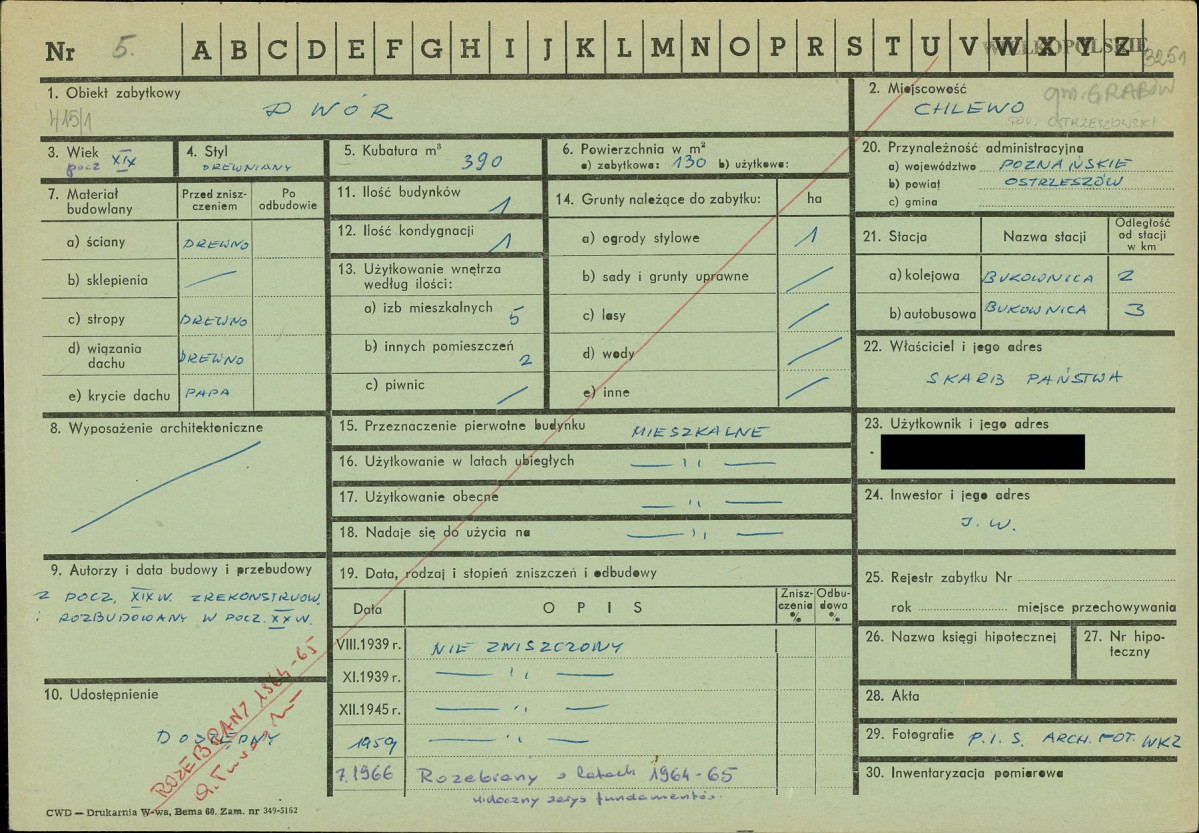 Nr 5. A B C D E F G H I J K L M N O P R S T U V W X Y Z
WIELKOPOLSKIE
3251
1. Obiekt zabytkowy
415/1
DWÓR
2. Miejscowość
gm. GRABÓW
CHLEWO
POW. OSTRZESZOWSKI
3. Wiek
pocz XIX
4. Styl
DREWNIANY
5. Kubatura m³
390
6. Powierzchnia w m²
a) zabytkowa: 130 b) użytkowa:
20. Przynależność administracyjna
a) województwo POZNAŃSKIE
b) powiat OSTRZESZÓW
c) gmina
7. Materiał budowlany
Przed zniszczeniem
Po odbudowie
a) ściany DREWNO
b) sklepienia —
c) stropy DREWNO
d) wiązania dachu DREWNO
e) krycie dachu PAPA
11. Ilość budynków
1
12. Ilość kondygnacji
1
13. Użytkowanie wnętrza
według ilości:
a) izb mieszkalnych 5
b) innych pomieszczeń 2
c) piwnic /
14. Grunty należące do zabytku: ha
a) ogrody stylowe 1
b) sady i grunty uprawne /
c) lasy /
d) wody /
e) inne /
21. Stacja Nazwa stacji Odległość od stacji w km
a) kolejowa BUKOWNICA 2
b) autobusowa BUKOWNICA 3
22. Właściciel i jego adres
SKARB PAŃSTWA
8. Wyposażenie architektoniczne
15. Przeznaczenie pierwotne budynku MIESZKALNE
16. Użytkowanie w latach ubiegłych — ,, —
17. Użytkowanie obecne — ,, —
18. Nadaje się do użycia na — ,, —
23. Użytkownik i jego adres
24. Inwestor i jego adres
J. W.
9. Autorzy i data budowy i przebudowy
Z POCZ. XIX W. ZREKONSTRUOW.
i ROZBUDOWANY W POCZ. XX W.
19. Data, rodzaj i stopień zniszczeń i odbudowy
Data OPIS Zniszczenia % Odbudowa %
VIII.1939 r. NIE ZNISZCZONY
XI.1939 r. — ,, —
XII.1945 r. — ,, —
1959 — ,, —
7.1966 Rozebrany w latach 1964-65
widoczny zarys fundamentów.
25. Rejestr zabytku Nr
rok miejsce przechowywania
26. Nazwa księgi hipotecznej
27. Nr hipoteczny
28. Akta
29. Fotografie P.I.S. ARCH. FOT. WKZ
30. Inwentaryzacja pomiarowa
10. Udostępnienie
DOSTĘPNY
ROZEBRANY 1964-65
CWD — Drukarnia W-wa, Bema 60. Zam. nr 349-5162